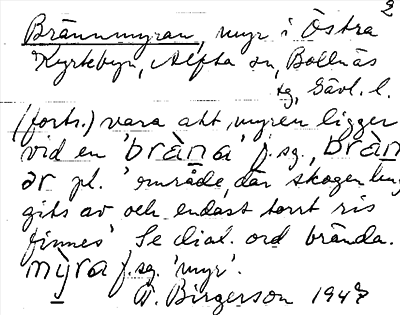 2
Brännmyran, myr i Östra
Kyrkbyn, Alfta sn, Bollnäs
tg, Gävl. l.
(forts.) vara att myren ligger
vid en 'bràna' f.sg., bràn
ar pl. 'område, där skogen
gits av och endast torrt ris
finnes' Se dial. ord brända.
myra f.sg. 'myr'.
Birgerson 1947